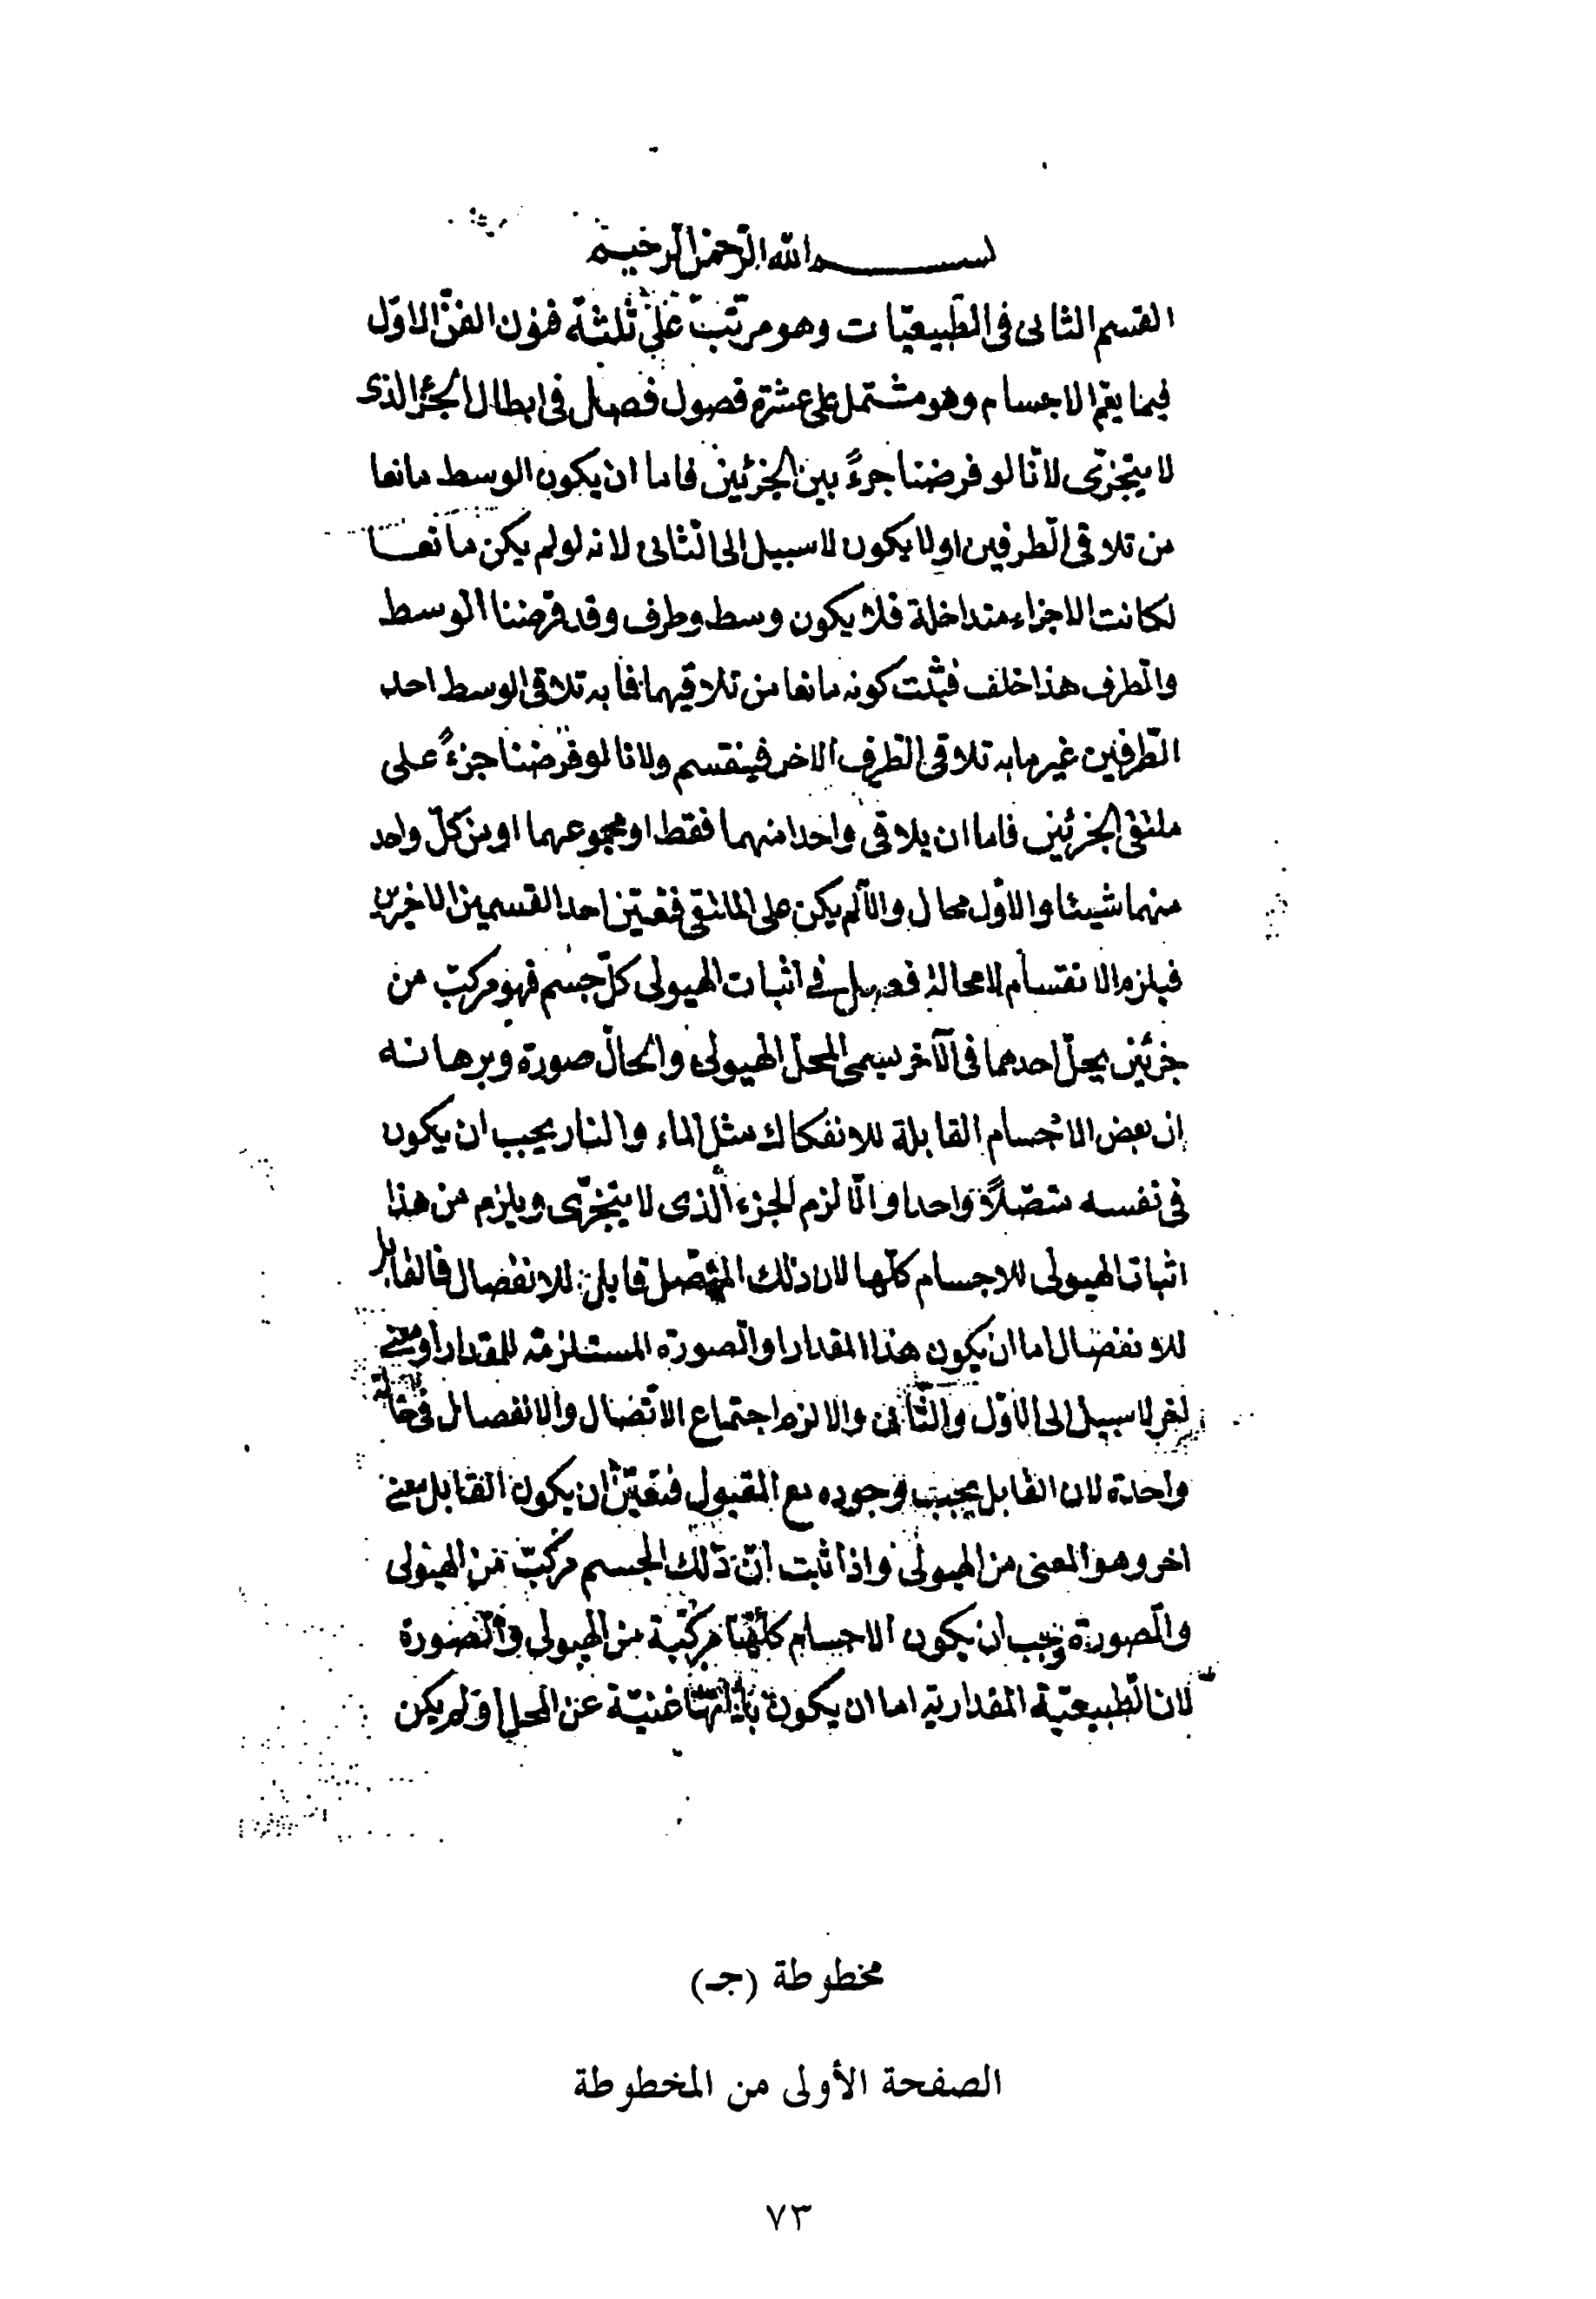 بسم الله الرحمن الرحيم
القسم الثانى فى الطّبيعيّات وهو مرتّب على ثلثة فنون الفنّ الاوّل
فيما يعمّ الاجسام وهو مشتمل على عشرة فصول فصل فى ابطال الجزء الذى
لا يتجزّى لانّا لو فرضنا جزءً بين الجزئين فاما ان يكون الوسط مانعا
من تلاقى الطرفين او لا يكون لا سبيل الى الثانى لانه لو لم يكن مانعا
لكانت الاجزاء متداخلة فلا يكون وسط وطرف وقد فرضنا الوسط
والطرف هذا خلف فثبت كونه مانعا من تلاقيهما فما به تلاقى الوسط احد
الطّرفين غير ما به تلاقى الطّرف الاخر فينقسم ولانا لو فرضنا جزءً على
ملتقى الجزئين فاما ان يلاقى واحدا منهما فقط او مجموعهما او من كلّ واحد
منهما شيئا والاوّل محال والّا لم يكن على الملتقى فتعيّن احد القسمين الاخيرين
فيلزم الانقسام لا محالة فصل فى اثبات الهيولى كلّ جسم فهو مركّب من
جزئين يحلّ احدهما فى الآخر يسمى المحلّ الهيولى والحالّ صورة وبرهانه
ان بعض الاجسام القابلة للانفكاك مثل الماء والنار يجب ان يكون
فى نفسه متصّلاً واحدا والّا لزم الجزء الذى لا يتجزّى ويلزم من هذا
اثبات الهيولى للاجسام كلّها لان ذلك المتّصل قابل للانفصال فالقابل
للانفصال اما ان يكون هذا المقدار او الصورة المستلزمة للمقدار او معنى
اخر لا سبيل الى الاوّل والثّانى والا لزم اجتماع الاتّصال والانفصال فى حالة
واحدة لان القابل يجب وجوده مع المقبول فتعيّن ان يكون القابل معنى
اخر وهو المعنى من الهيولى واذا ثبت انّ ذلك الجسم مركّب من الهيولى
والصورة وجب ان يكون الاجسام كلّها مركّبة من الهيولى والصورة
لان الطبيعيّة المقدارية اما ان يكون بذاتها غنيّة عن المحل او لم يكن
مخطوطة (جـ)
الصفحة الأولى من المخطوطة
٧٣